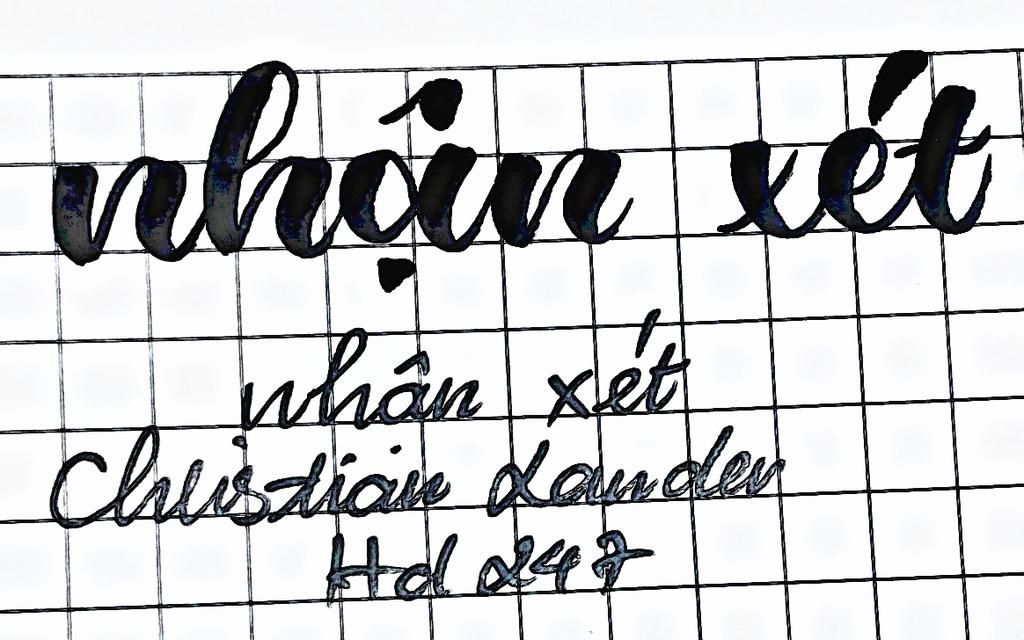 nhận xét
nhân xét
Christian Lander
Hd 247